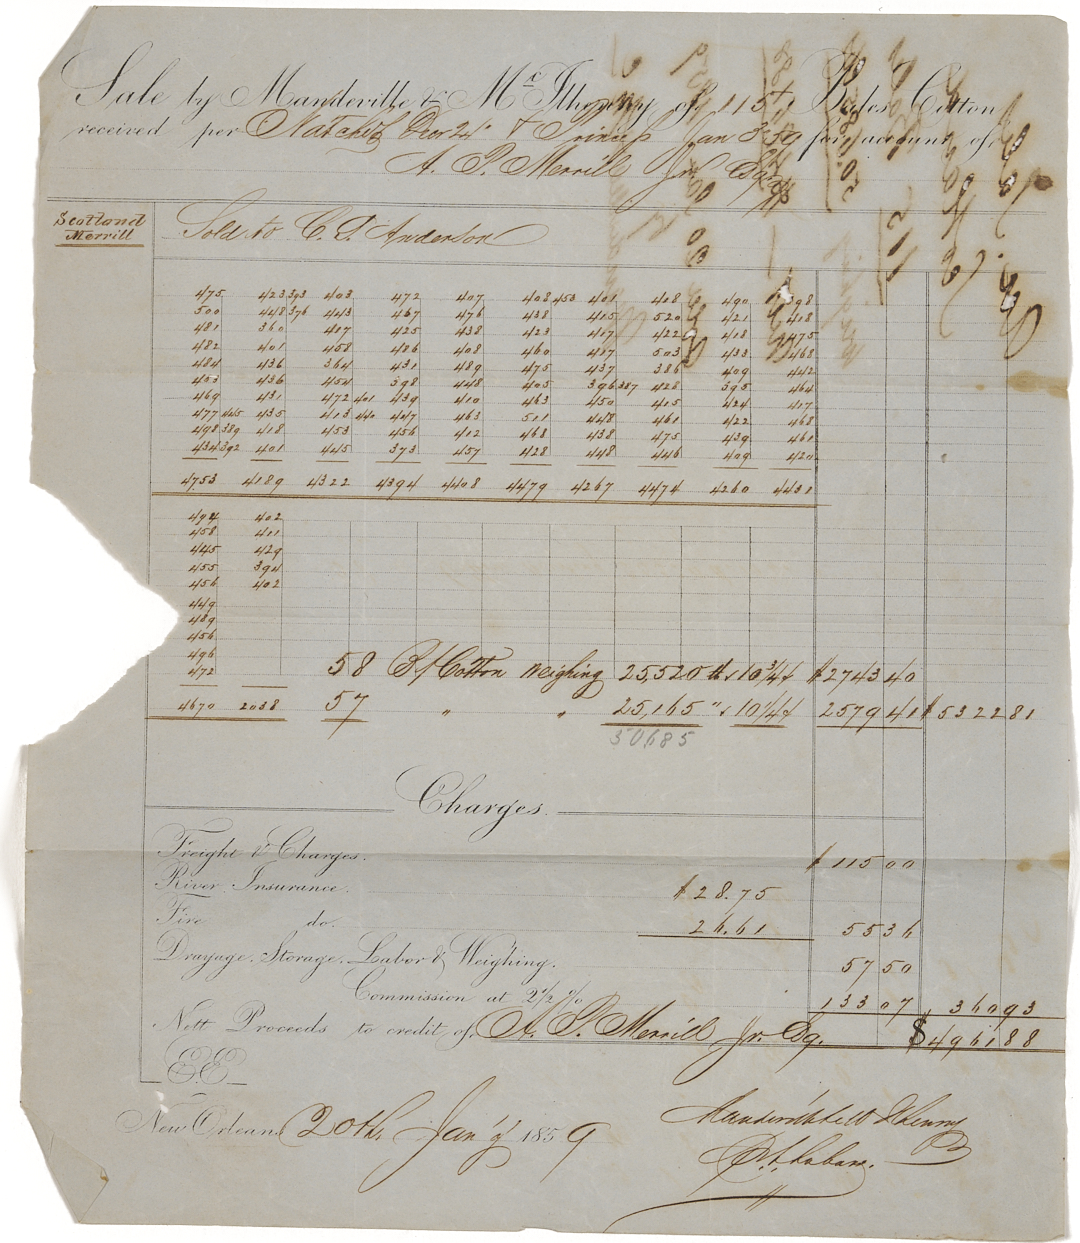 Sale by Mandeville & McIlhenny of 115 Bales Cotton
received per Natchez Dec 24 & Princess Jan 3 59 for account of
A. P. Merrill Jr. Esq
Scotland
Merrill
Sold to C. S. Anderson
475 423 393 403 472 407 408 453 401 418 490 398
500 448 376 443 467 476 438 415 520 421 418
481 360 417 425 438 423 417 422 418 475
482 401 458 486 408 460 417 503 433 468
484 436 364 431 489 475 437 386 409 442
403 436 454 398 448 405 396 387 428 395 464
469 431 472 401 439 410 463 450 415 424 417
477 445 435 413 440 447 463 511 448 461 422 468
498 389 418 453 456 412 468 438 475 439 461
434 392 401 445 373 457 428 448 446 409 420
4753 4189 4322 4394 4408 4479 4267 4474 4260 4431
494 402
458 411
445 429
455 394
456 402
449
489
456
496
472
58 Bs Cotton weighing 25,520 lbs 10 3/4 ¢ $2743 40
4670 2038 57 " " 25,165 " 10 1/4 ¢ 2579 41 $5322 81
50685
Charges.
Freight & Charges. $115 00
River Insurance. $28.75
Fire do. 26.61 55 36
Drayage, Storage, Labor & Weighing. 57 50
Commission at 2 1/2 % 133 07 360 93
Nett Proceeds to credit of A. P. Merrill Jr. Esq. $4961 88
E.E
New Orleans 20th Jan'y 1859
Mandeville & McIlhenny